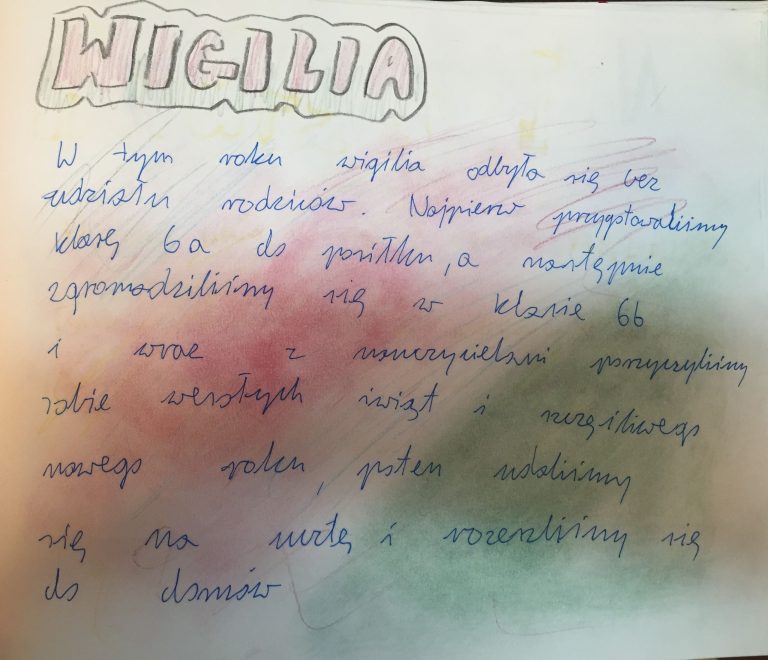 WIGILIA
W tym roku wigilia odbyła się bez
udziału rodziców. Najpierw przygotowaliśmy
klasę 6a do posiłku, a następnie
zgromadziliśmy się w klasie 6b
i wraz z nauczycielami porzyczyliśmy
sobie wesołych świąt i szczęśliwego
nowego roku, potem udaliśmy
się na ucztę i rozeszliśmy się
do domów